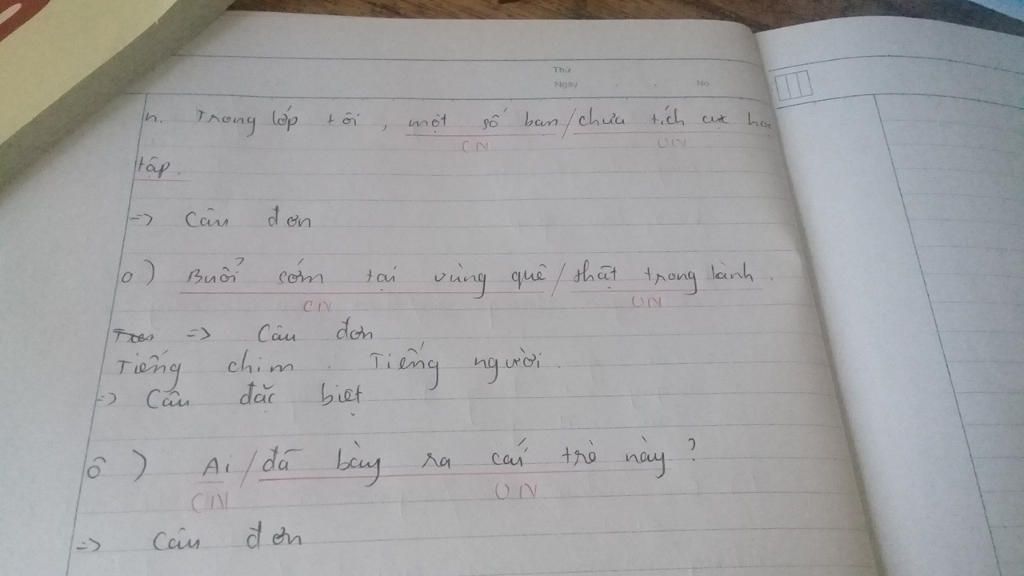 Thứ
Ngày . . No
n. Trong lớp tôi, một số bạn/chưa tích cực học
CN VN
tập.
=> Câu đơn
o) Buổi sớm tại vùng quê/thật trong lành.
CN VN
=> Câu đơn
Tiếng chim. Tiếng người.
=> Câu đặc biệt
ô) Ai/đã bày ra cái trò này?
CN VN
=> Câu đơn